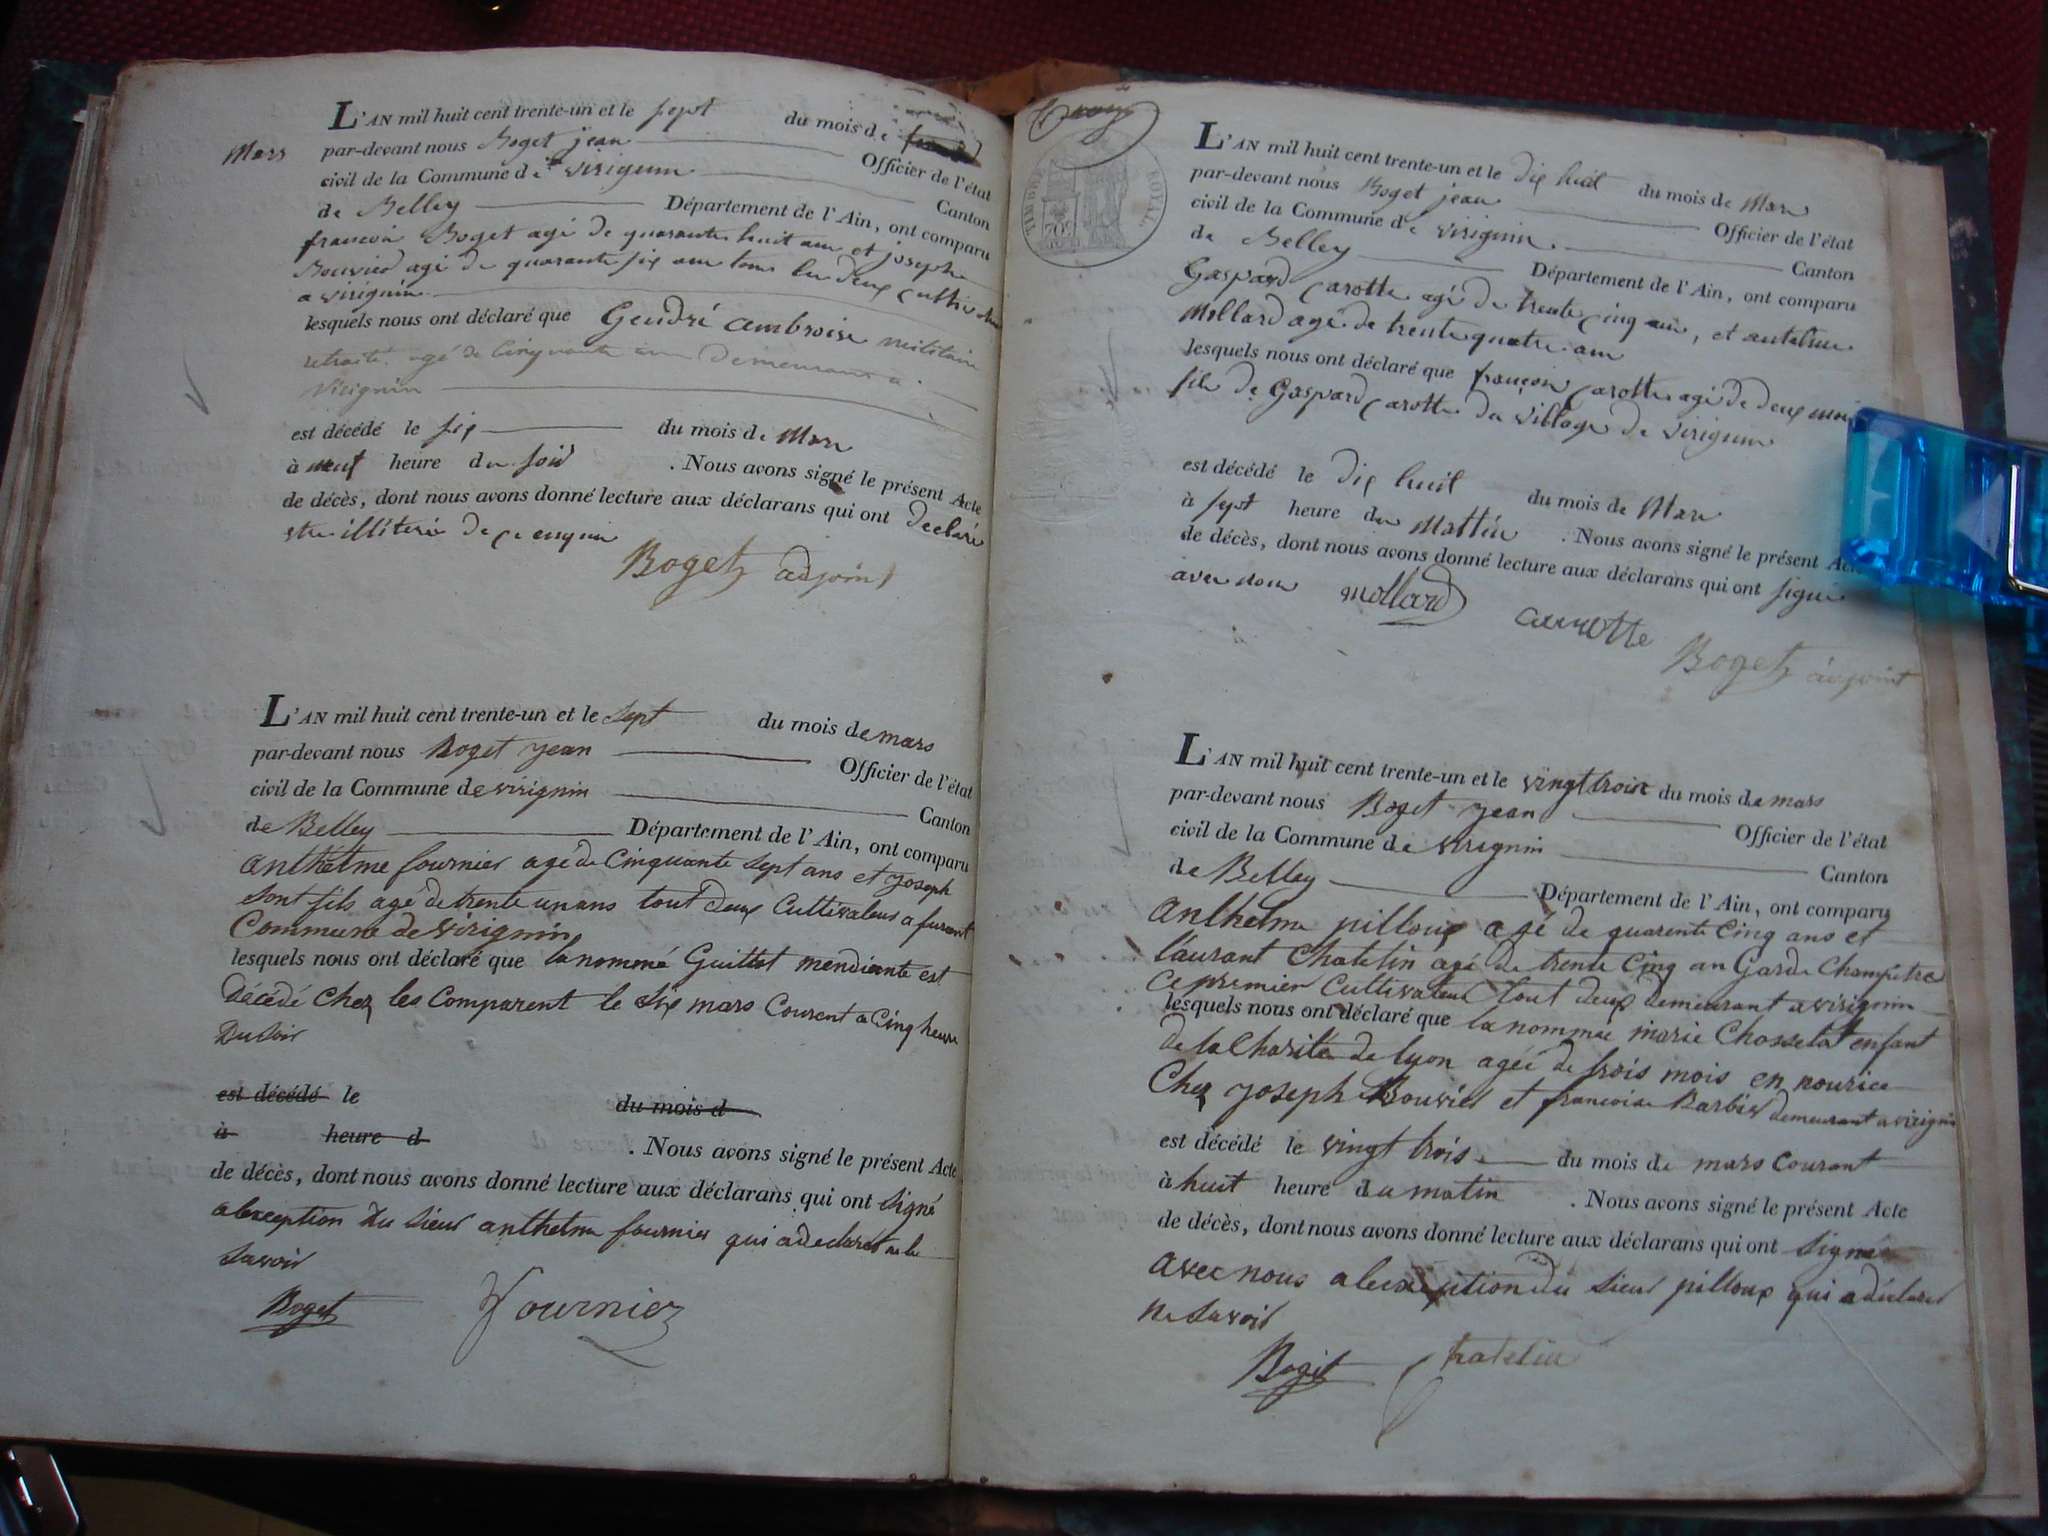 L'AN mil huit cent trente-un et le sept du mois de
Mars
par-devant nous Boget jean Officier de l'état
civil de la Commune de virignin Canton
de Belley Département de l'Ain, ont comparu
francois Boget agé de quarante huit ans et joseph
Bouvier agé de quarante six ans tous les deux
a virignin
lesquels nous ont déclaré que Gendré ambroise militaire
retraité agé de Cinquante ans demeurant a
virignin
est décédé le six du mois de Mars
à neuf heure du soir . Nous avons signé le présent Acte
de décès, dont nous avons donné lecture aux déclarans qui ont declaré
etre illiteré de ce enquis
Boget adjoint
L'AN mil huit cent trente-un et le sept du mois de mars
par-devant nous Boget jean Officier de l'état
civil de la Commune de virignin Canton
de Belley Département de l'Ain, ont comparu
anthelme fournier agé de Cinquante sept ans et joseph
sont fils agé de trente un ans tout deux Cultivateurs a furant
Commune de virignin
lesquels nous ont déclaré que la nommé Guittot mendiante est
décédé chez les Comparent le six mars Courent a Cinq heure
du soir
est décédé le du mois d
à heure d . Nous avons signé le présent Acte
de décès, dont nous avons donné lecture aux déclarans qui ont signé
a lexception du sieur anthelme fournier qui a declaret ne le
savoir
Boget Fournier
TIMBRE ROYAL
70c
L'AN mil huit cent trente-un et le dix huit du mois de Mars
par-devant nous Boget jean Officier de l'état
civil de la Commune de virignin Canton
de Belley Département de l'Ain, ont comparu
Gaspard Carotte agé de trente cinq ans, et antelme
Mollard agé de trente quatre ans
lesquels nous ont déclaré que françois Carotte agé de deux mois
fils de Gaspard Carotte du village de virignin
est décédé le dix huit du mois de Mars
à sept heure du Mattin . Nous avons signé le présent Acte
de décès, dont nous avons donné lecture aux déclarans qui ont signé
avec nous mollard carrotte
Boget adjoint
L'AN mil huit cent trente-un et le vingt trois du mois de mars
par-devant nous Boget jean Officier de l'état
civil de la Commune de virignin Canton
de Belley Département de l'Ain, ont comparu
anthelme pilloux agé de quarente Cinq ans et
laurant Chatelin agé de trente Cinq an Garde Champètre
ce premier Cultivateur tout deux demeurant a virignin
lesquels nous ont déclaré que la nommée marie Chosselat enfant
de la Charité de lyon agée de trois mois en nourice
Chez joseph Bouvier et francoise Barbier demeurant a virignin
est décédé le vingt trois du mois de mars Courant
à huit heure du matin . Nous avons signé le présent Acte
de décès, dont nous avons donné lecture aux déclarans qui ont signé
avec nous a lexception du sieur pilloux qui a déclaré
ne savoir
Boget Chatelin